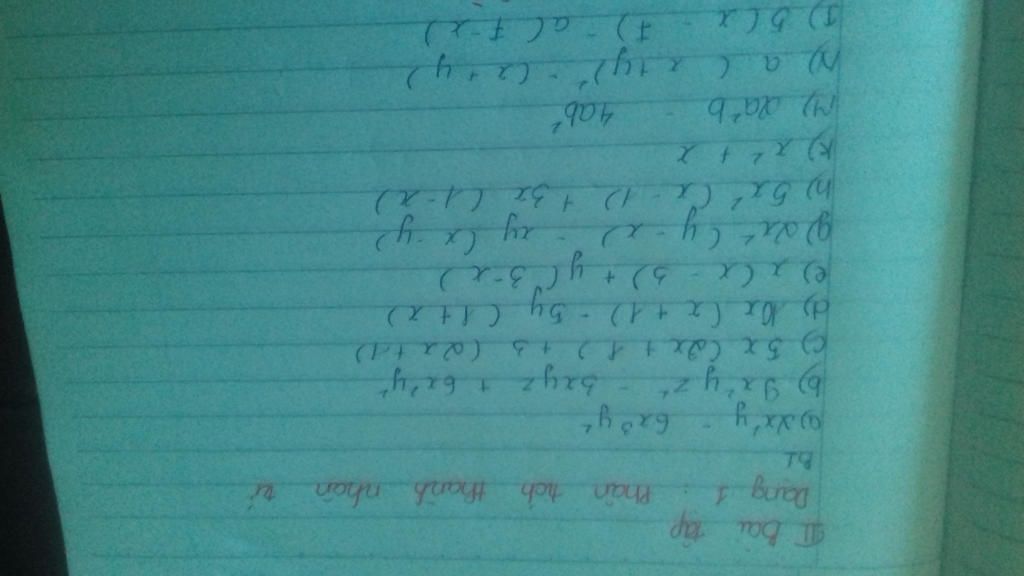 II Bài tập
Dạng 1 : Phân tích thành nhân tử
B1
a) 2x²y - 6x³y²
b) 9x²y²z² - 3xyz + 6x²y²
c) 3x (2x + 1) + 3 (2x + 1)
d) 10x (x + 1) - 5y (1 + x)
e) x (x - 3) + y (3 - x)
g) 2x² (y - x) - xy (x - y)
h) 5x² (x - 1) + 3x (1 - x)
k) x² + x
M) 2a²b - 4ab²
N) a (x + y)² - (x + y)
I) 5 (x - 7) - a (7 - x)